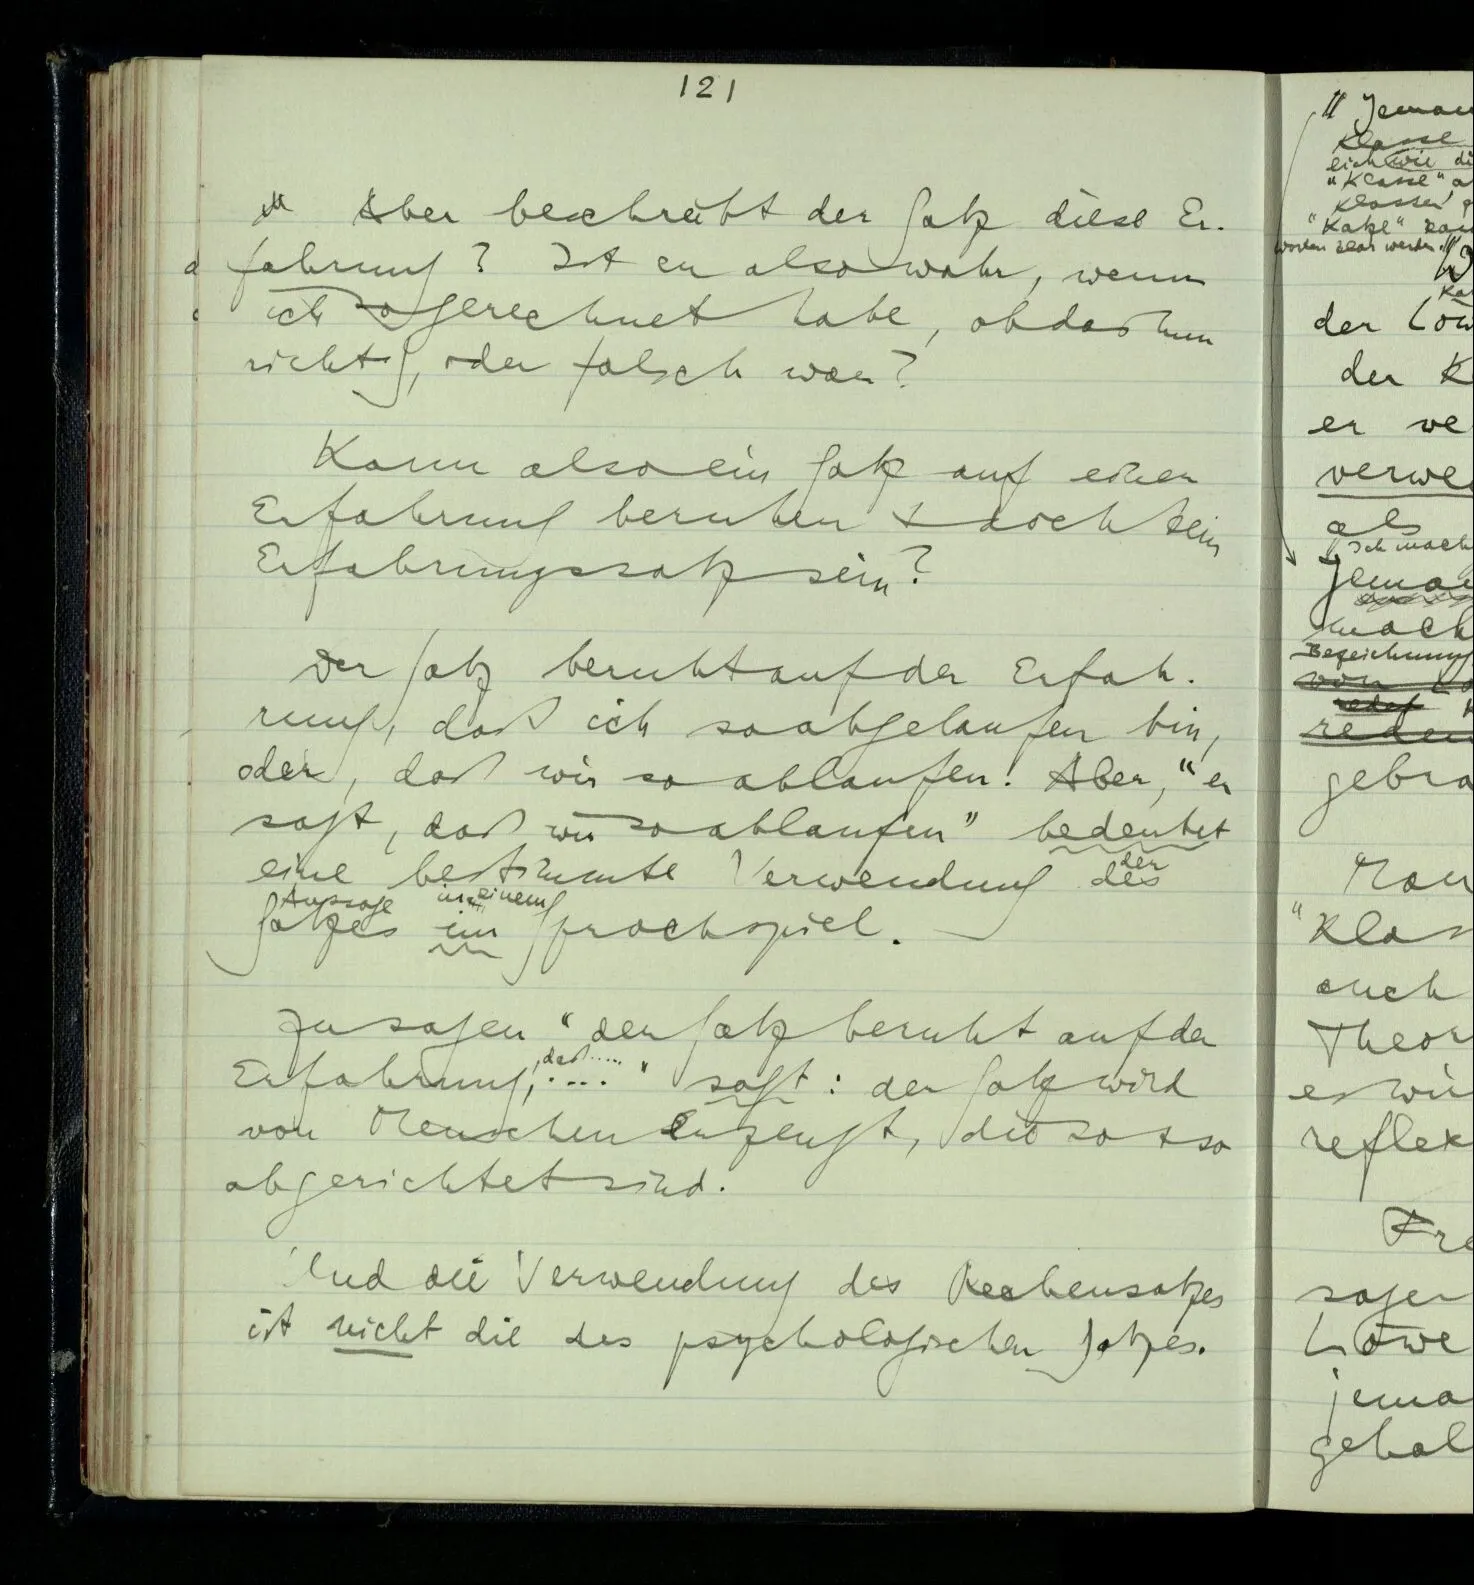 121
Aber beschreibt der Satz diese Er-
fahrung? Ist er also wahr, wenn
ich so gerechnet habe, ob das nun
richtig, oder falsch war?
Kann also ein Satz auf einer
Erfahrung beruhen & doch kein
Erfahrungssatz sein?
Der Satz beruht auf der Erfah-
rung, daß ich so abgelaufen bin,
oder, daß wir so ablaufen. Aber, "er
sagt, daß wir so ablaufen" bedeutet
eine bestimmte Verwendung des
der
Aussage in einem
Satzes im Sprachspiel.
Zu sagen "der Satz beruht auf der
daß.....
Erfahrung, ...." sagt: der Satz wird
von Menschen erzeugt, die so & so
abgerichtet sind.
Und die Verwendung des Rechensatzes
ist nicht die des psychologischen Satzes.
Klasse
"Klasse"
Klassen
"Katze"
der Löw
der K
er ve
verwe
als
Ich mach
mach
Bezeichnung
von
redet
reden
gebra
Man
"Klas
auch
Theor
es wir
reflex
Fre
sagen
Löwe
jema
gehal